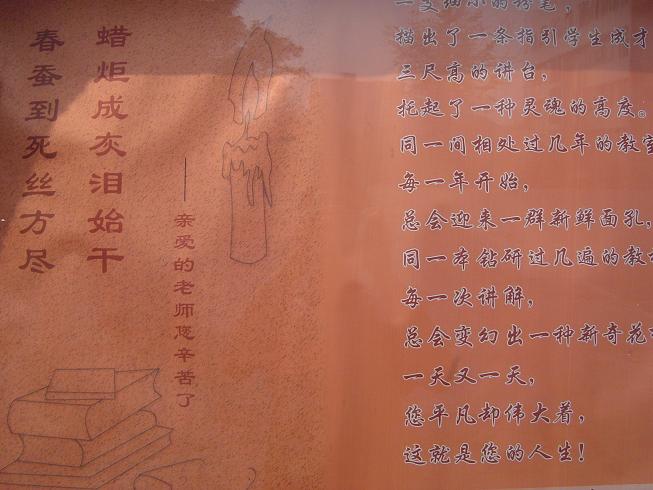 春蚕到死丝方尽
蜡炬成灰泪始干
——亲爱的老师您辛苦了
一支细小的粉笔，
描出了一条指引学生成才
三尺高的讲台，
托起了一种灵魂的高度。
同一间相处过几年的教室
每一年开始，
总会迎来一群新鲜面孔，
同一本钻研过几遍的教
每一次讲解，
总会变幻出一种新奇花
一天又一天，
您平凡却伟大着，
这就是您的人生！